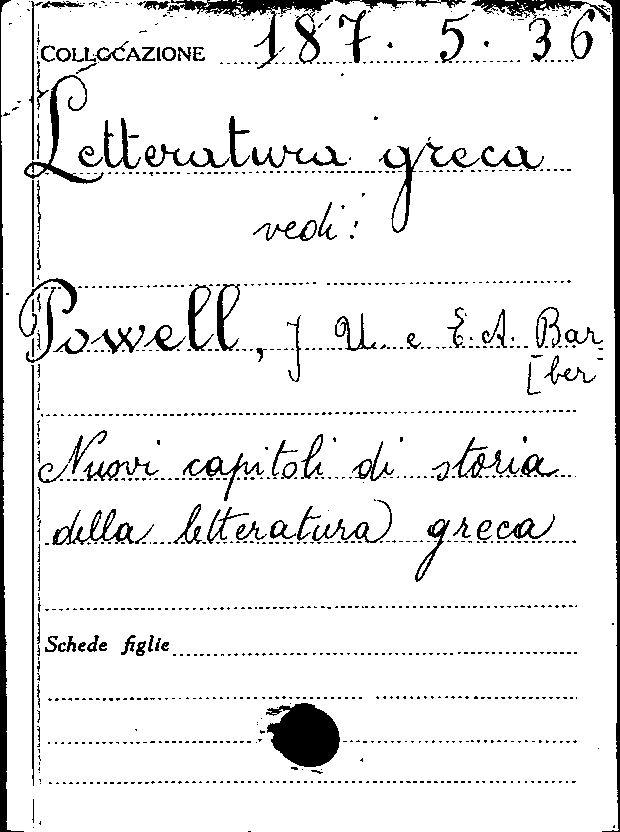 COLLOCAZIONE 187. 5. 36
Letteratura greca
vedi:
Powell, J U. e E. A. Bar
[ber
Nuovi capitoli di storia
della letteratura greca
Schede figlie